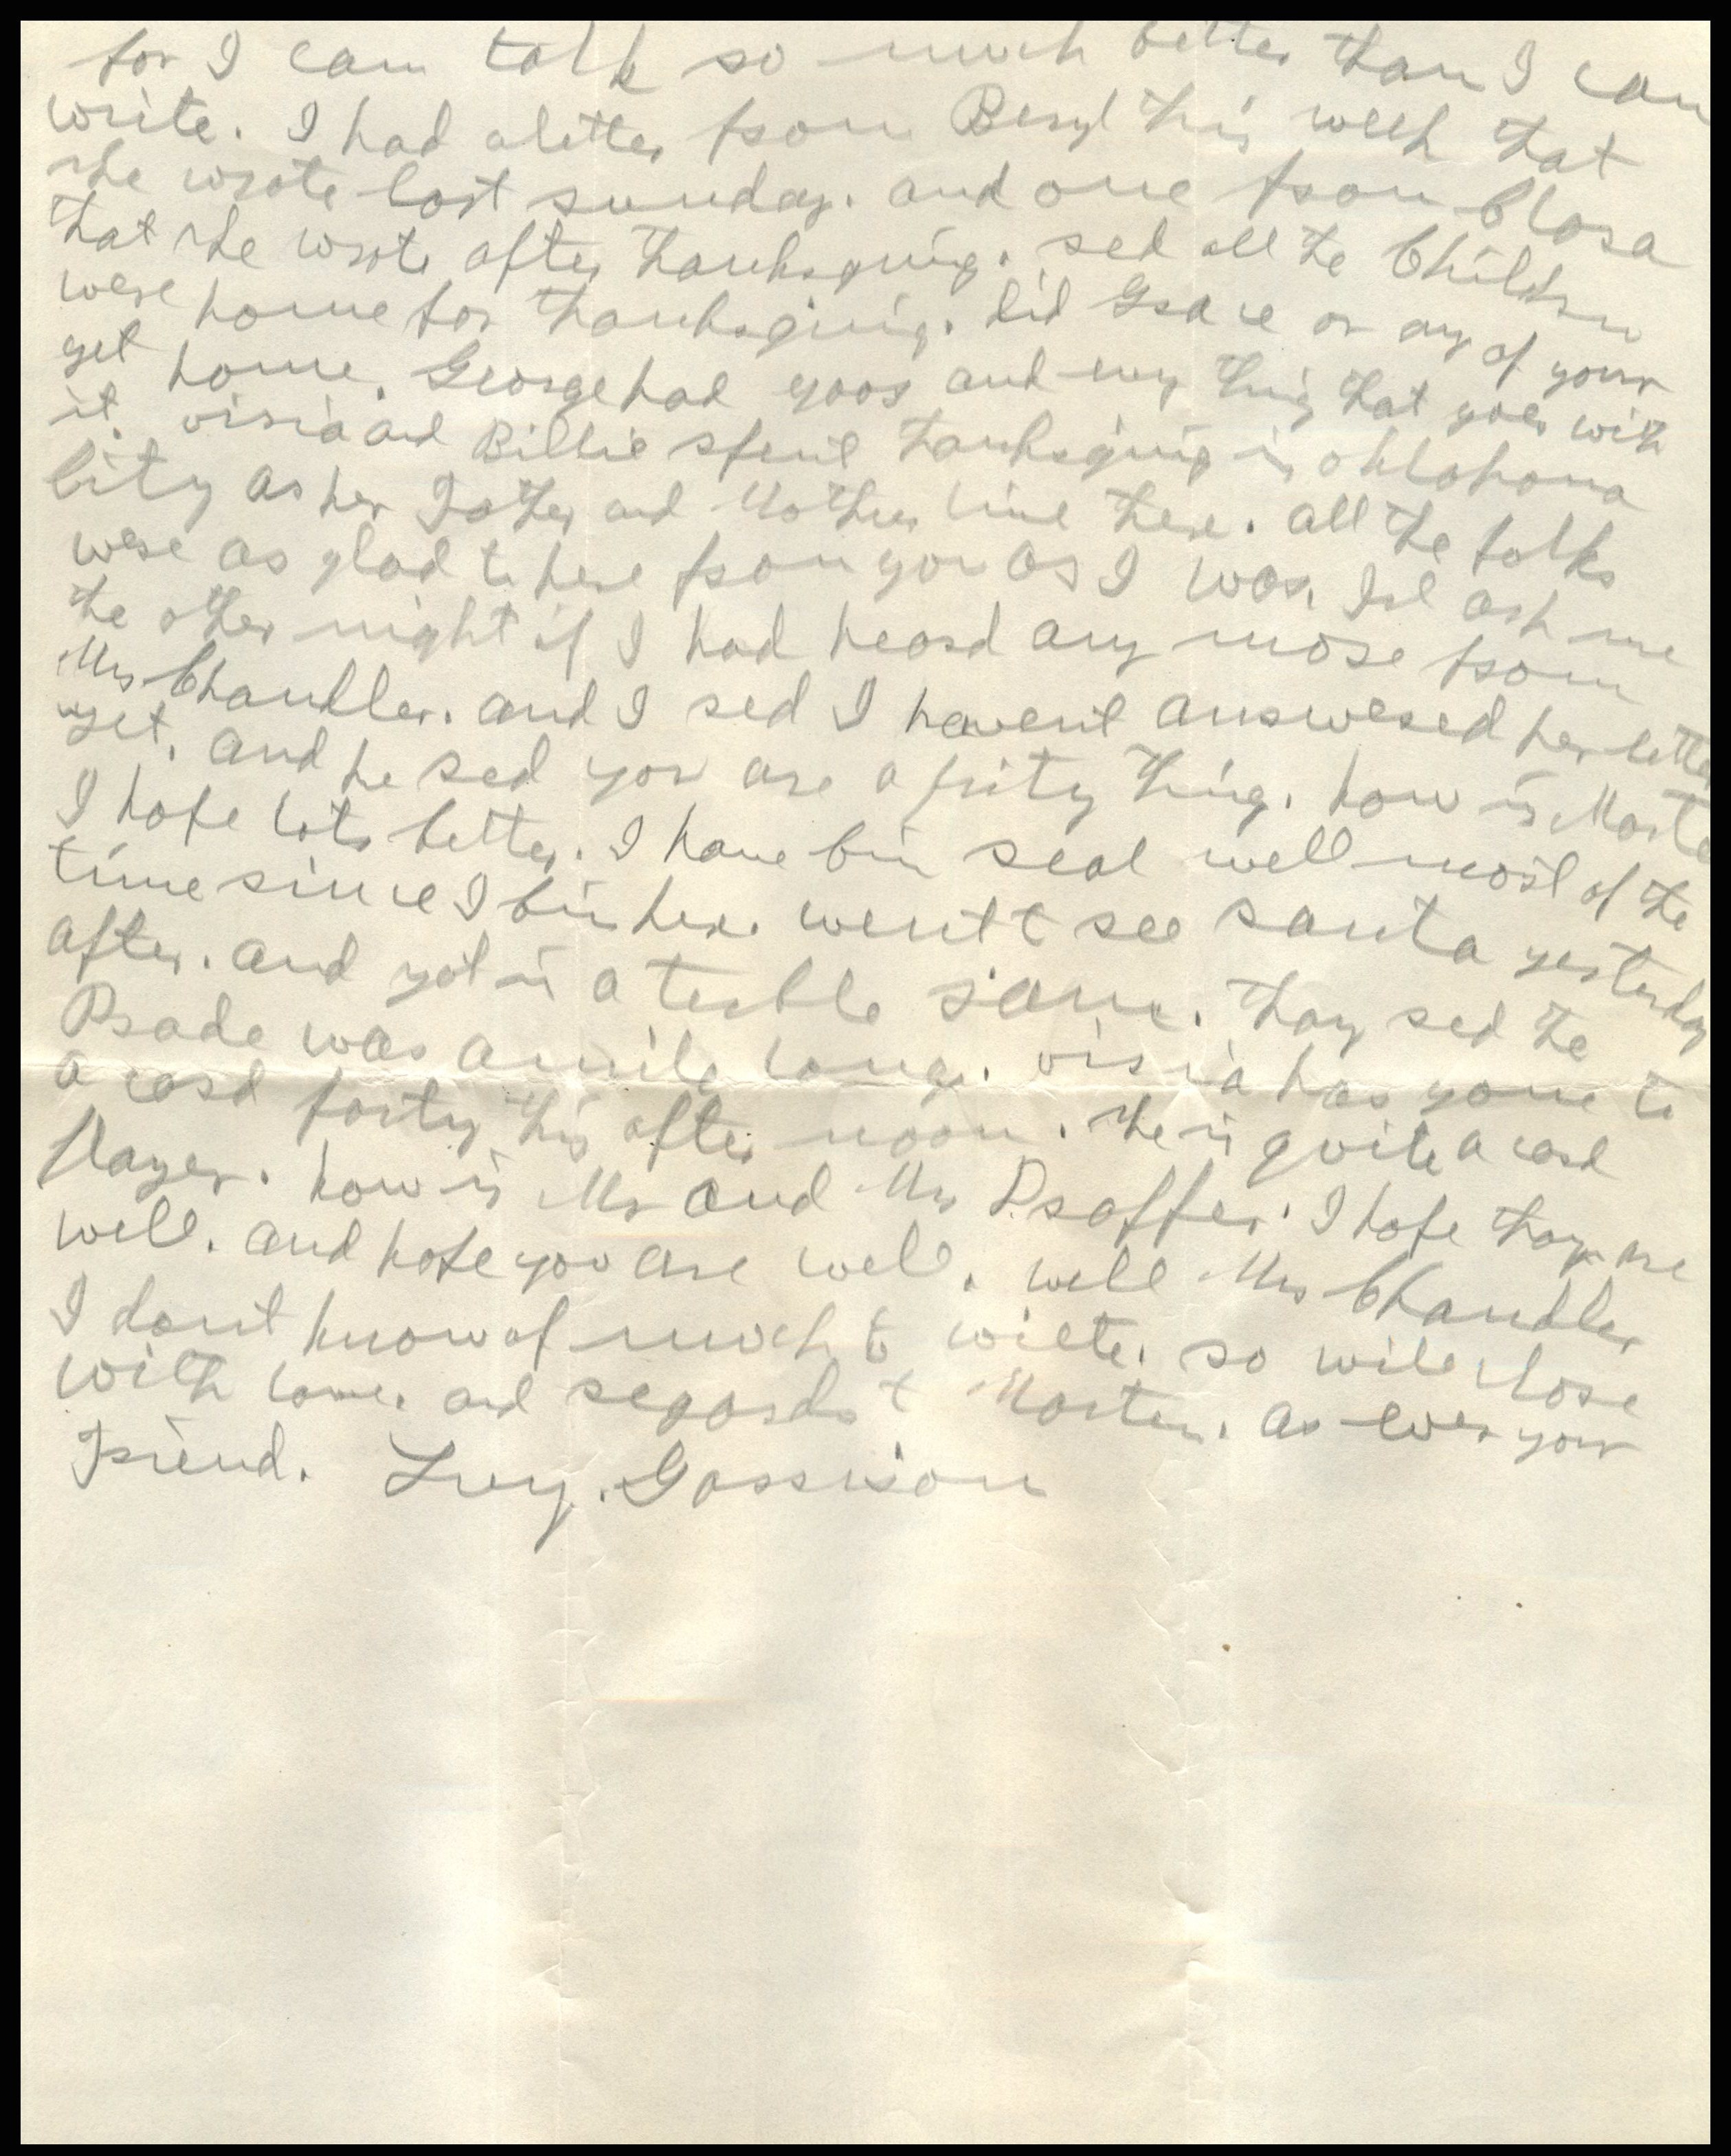 for I can talk so much better than I can
write. I had a letter from Beryl this week that
she wrote last sunday. and one from Clara
that she wrote after thanksgiving. sed all the Children
were home for thanksgiving. did Grace or any of your
get home. George had goos and evry thing that goes with
it. virgia and Billie spent thanksgiving in oklahoma
City as her Father and Mother live there. all the folks
were as glad to here from you as I was. ask me
the other night if I had heard any more from
Mrs Chandler. and I sed I havent answered her letter
yet. and he sed you are a prity thing. how is
I hope lots better. I have bin real well most of the
time since I bin here. went t see santa yesterday
after. and got in a terble jam. thay sed the
Prade was a mile long. virgia has gone to
a card party this after noon. she is quite a card
player. how is Mr and Mrs Proffer. I hope thay are
well. and hope you are well. well Mrs Chandler
I dont know of much to write. so will close
with love. and regards t Marten. as ever your
Friend. Lucy. Garrison